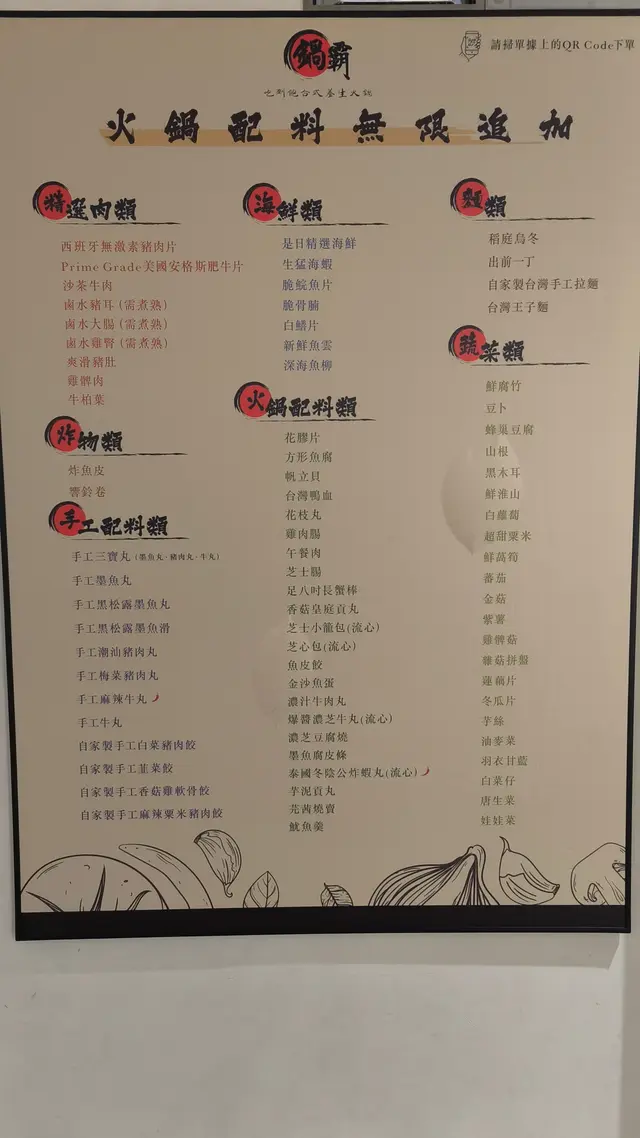 請掃單據上的QR Code下單
鍋霸
火鍋配料無限追加
精選肉類
西班牙無激素豬肉片
Prime Grade美國安格斯肥牛片
沙茶牛肉
鹵水豬耳(需煮熟)
鹵水大腸(需煮熟)
鹵水雞腎(需煮熟)
爽滑豬肚
雞髀肉
牛柏葉
炸物類
炸魚皮
響鈴卷
手工配料類
手工三寶丸(墨魚丸·豬肉丸·牛丸)
手工墨魚丸
手工黑松露墨魚丸
手工黑松露墨魚滑
手工潮汕豬肉丸
手工梅菜豬肉丸
手工麻辣牛丸
手工牛丸
自家製手工白菜豬肉餃
自家製手工韮菜餃
自家製手工香菇雞軟骨餃
自家製手工麻辣粟米豬肉餃
海鮮類
是日精選海鮮
生猛海蝦
脆鯇魚片
脆骨腩
白鱔片
新鮮魚雲
深海魚柳
火鍋配料類
花膠片
方形魚腐
帆立貝
台灣鴨血
花枝丸
雞肉腸
午餐肉
芝士腸
足八吋長蟹棒
香菇皇庭貢丸
芝士小籠包(流心)
芝心包(流心)
魚皮餃
金沙魚蛋
濃汁牛肉丸
爆醬濃芝牛丸(流心)
濃芝豆腐燒
墨魚腐皮條
泰國冬陰公炸蝦丸(流心)
芋泥貢丸
芫茜燒賣
魷魚羹
麵類
稻庭烏冬
出前一丁
自家製台灣手工拉麵
台灣王子麵
蔬菜類
鮮腐竹
豆卜
蜂巢豆腐
山根
黑木耳
鮮淮山
白蘿蔔
超甜粟米
鮮萵筍
蕃茄
金菇
紫薯
雞髀菇
雜菇拼盤
蓮藕片
冬瓜片
芋絲
油麥菜
羽衣甘藍
白菜仔
唐生菜
娃娃菜